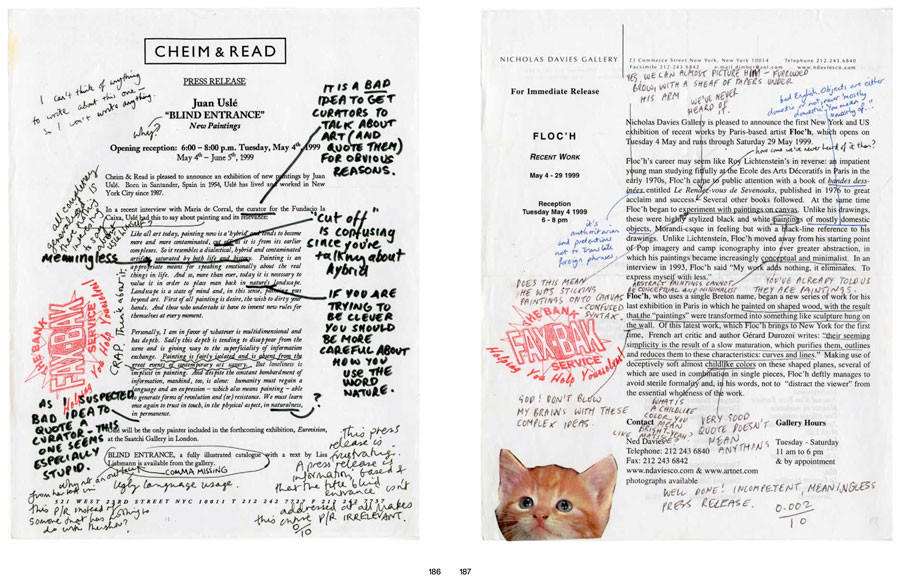 CHEIM & READ
PRESS RELEASE
Juan Uslé
"BLIND ENTRANCE"
New Paintings
Opening reception: 6:00 – 8:00 p.m. Tuesday, May 4th, 1999
May 4th – June 5th, 1999
Cheim & Read is pleased to announce an exhibition of new paintings by Juan
Uslé. Born in Santander, Spain in 1954, Uslé has lived and worked in New
York City since 1987.
In a recent interview with Maria de Corral, the curator for the Fundacio la
Caixa, Uslé had this to say about painting and its relevance:
Like all art today, painting now is a 'hybrid' and tends to become
more and more contaminated, cut off as it is from its earlier
complexes. So it resembles a dialectical, hybrid and contaminated
artifact, saturated by both life and history. Painting is an
appropriate means for speaking emotionally about the real
things in life. And so, more than ever, today it is necessary to
value it in order to place man back in nature's landscape.
Landscape is a state of mind and, in this sense, painting goes
beyond art. First of all painting is desire, the wish to dirty your
hands. And those who undertake it have to invent new rules for
themselves at every moment.
Personally, I am in favor of whatever is multidimensional and
has depth. Sadly this depth is tending to disappear from the
scene and is giving way to the superficiality of information
exchange. Painting is fairly isolated and is absent from the
great events of contemporary art savvy. But loneliness is
implicit in painting. And despite the constant bombardment of
information, mankind, too, is alone: humanity must regain a
language and an expression – which also means painting – able
to generate forms of revolution and (or) resistance. We must learn
once again to trust in touch, in the physical aspect, in naturalness,
in permanence.
Uslé will be the only painter included in the forthcoming exhibition, Eurovision,
at the Saatchi Gallery in London.
BLIND ENTRANCE, a fully illustrated catalogue with a text by Lisa
Liebmann is available from the gallery.
521 WEST 23RD STREET NYC 10011 T 212 242 7727 F 212 242 7737
I can't think of anything
to write about this one.
So I won't write anything.
why?
IT IS A BAD
IDEA TO GET
CURATORS TO
TALK ABOUT
ART (AND
QUOTE THEM)
FOR OBVIOUS
REASONS.
meaningless
"cut off"
IS CONFUSING
SINCE YOU'RE
TALKING ABOUT
HYBRID
CRAP. Think about it.
IF YOU ARE
TRYING TO
BE CLEVER
YOU SHOULD
BE MORE
CAREFUL ABOUT
HOW YOU
USE THE
WORD
NATURE.
THE BANK
FAX-BAK
SERVICE
Helping You Help Yourselves!
AS I SUSPECTED
BAD IDEA TO
QUOTE A
CURATOR – THIS
ONE SEEMS
ESPECIALLY
STUPID.
?
COMMA MISSING
Ugly language usage.
this press
release is
frustrating.
A press release is
information based &
that the title blind
entrance isn't
addressed at all makes
this entire P/R IRRELEVANT.
0/10
this P/R instead of
someone that has nothing to
do with the show?
186
NICHOLAS DAVIES GALLERY
23 Commerce Street New York, New York 10014 Telephone 212.243.6840
Facsimile 212.243.6842 www.ndaviesco.com
For Immediate Release
FLOC'H
RECENT WORK
May 4 - 29 1999
Reception
Tuesday May 4 1999
6 - 8 pm
YES, WE CAN ALMOST PICTURE HIM – FURROWED
BROW, WITH A SHEAF OF PAPERS UNDER
HIS ARM
WE'VE NEVER
HEARD OF IT.
bad English. Objects are either
domestic or not, never mostly
domestic. You mean
"mostly of..."
Nicholas Davies Gallery is pleased to announce the first New York and US
exhibition of recent works by Paris-based artist Floc'h, which opens on
Tuesday 4 May and runs through Saturday 29 May 1999.
how come we've never heard of it then?
Floc'h's career may seem like Roy Lichtenstein's in reverse: an impatient
young man studying fitfully at the Ecole des Arts Décoratifs in Paris in the
early 1970s, Floc'h came to public attention with a book of bandes dess-
inées entitled Le Rendez-vous de Sevenoaks, published in 1976 to great
acclaim and success. Several other books followed. At the same time
Floc'h began to experiment with paintings on canvas. Unlike his drawings,
these were highly stylized black and white paintings of mostly domestic
objects, Morandi-esque in feeling but with a black-line reference to his
drawings. Unlike Lichtenstein, Floc'h moved away from his starting point
of Pop imagery and camp iconography into ever greater abstraction, in
which his paintings became increasingly conceptual and minimalist. In an
interview in 1993, Floc'h said "My work adds nothing, it eliminates. To
express myself with less."
it's
authoritarian
and pretentious
not to translate
foreign phrases
DOES THIS MEAN
HE WAS STICKING
PAINTINGS ONTO CANVAS
– CONFUSED
SYNTAX.
ABSTRACT PAINTINGS CANNOT
BE CONCEPTUAL AND MINIMALIST
YOU'VE ALREADY TOLD US
THEY ARE PAINTINGS.
Floc'h, who uses a single Breton name, began a new series of work for his
last exhibition in Paris in which he painted on shaped wood, with the result
that the "paintings" were transformed into something like sculpture hung on
the wall. Of this latest work, which Floc'h brings to New York for the first
Time, French art critic and author Gérard Durozoi writes: "their seeming
simplicity is the result of a slow maturation, which purifies them, outlines
and reduces them to these characteristics: curves and lines." Making use of
deceptively soft almost childlike colors on these shaped planes, several of
which are used in combination in single pieces, Floc'h deftly manages to
avoid sterile formality and, in his words, not to "distract the viewer" from
the essential wholeness of the work.
THE BANK
FAX-BAK
SERVICE
Helping You Help Yourselves!
GOD! DON'T BLOW
MY BRAINS WITH THESE
COMPLEX IDEAS.
WHAT'S
A CHILDLIKE
COLOR – YOU
MEAN
BRIGHT – YEAH?
LIKE MATISSE?
VERY GOOD
QUOTE DOESN'T
MEAN
ANYTHING
Contact
Ned Davies
Telephone: 212 243 6840
Fax: 212 243 6842
www.ndaviesco.com & www.artnet.com
photographs available
Gallery Hours
Tuesday - Saturday
11 am to 6 pm
& by appointment
WELL DONE! INCOMPETENT, MEANINGLESS
PRESS RELEASE.
0.002/10
187